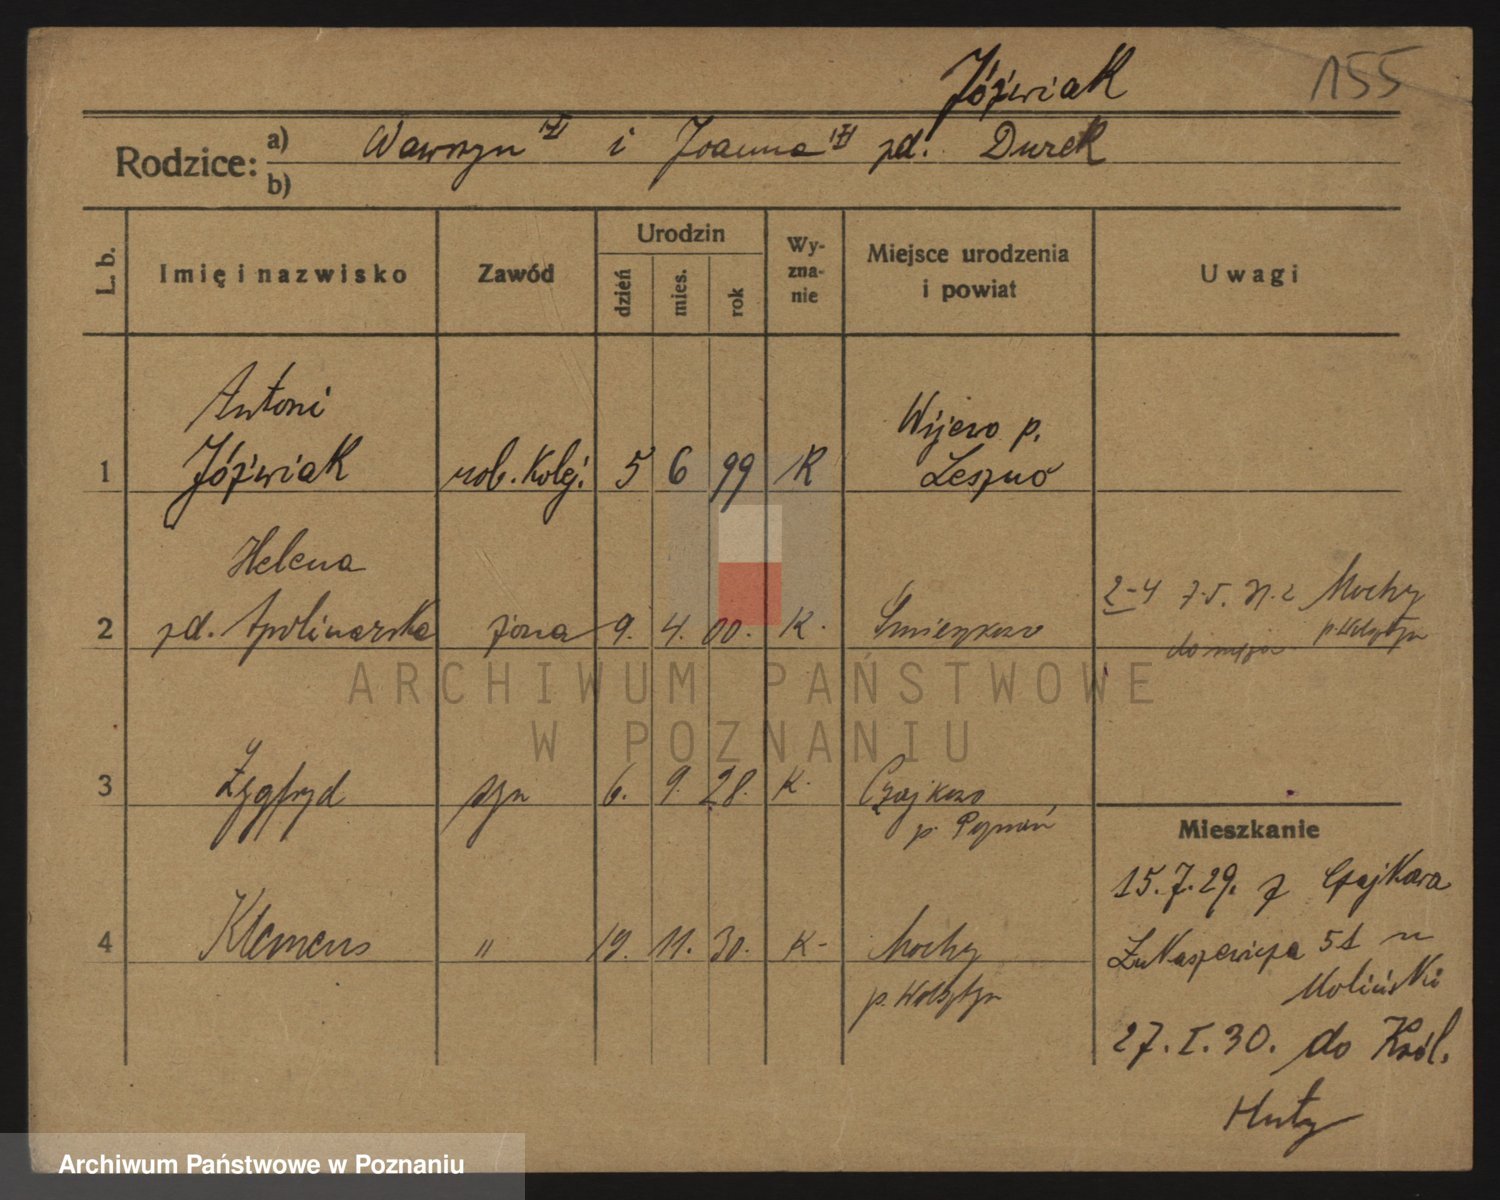 Jóźwiak
155
Rodzice: a) Wawrzyn i Joanna zd. Durek
b)
L. b.
Imię i nazwisko
Zawód
Urodzin
dzień
mies.
rok
Wy-
zna-
nie
Miejsce urodzenia
i powiat
Uwagi
Antoni
Wijewo p.
1 Jóźwiak rob. Kolej. 5 6 99 K Leszno
Helena
2-4 7.5. 31. z Mochy
2 zd. Apolinarska żona 9. 4. 00. K. p. Wolsztyn
do męża
ARCHIWUM PAŃSTWOWE
W POZNANIU
3 Zygfryd syn 6. 9. 28. K. Czajkowo
p. Poznań
Mieszkanie
15.7.29. z Czajkowa
4 Klemens " 19. 11. 30. K- Mochy
Łukaszewicza 51 u
p. Wolsztyn
Moliński
27.I.30. do Król.
Huty
Archiwum Państwowe w Poznaniu